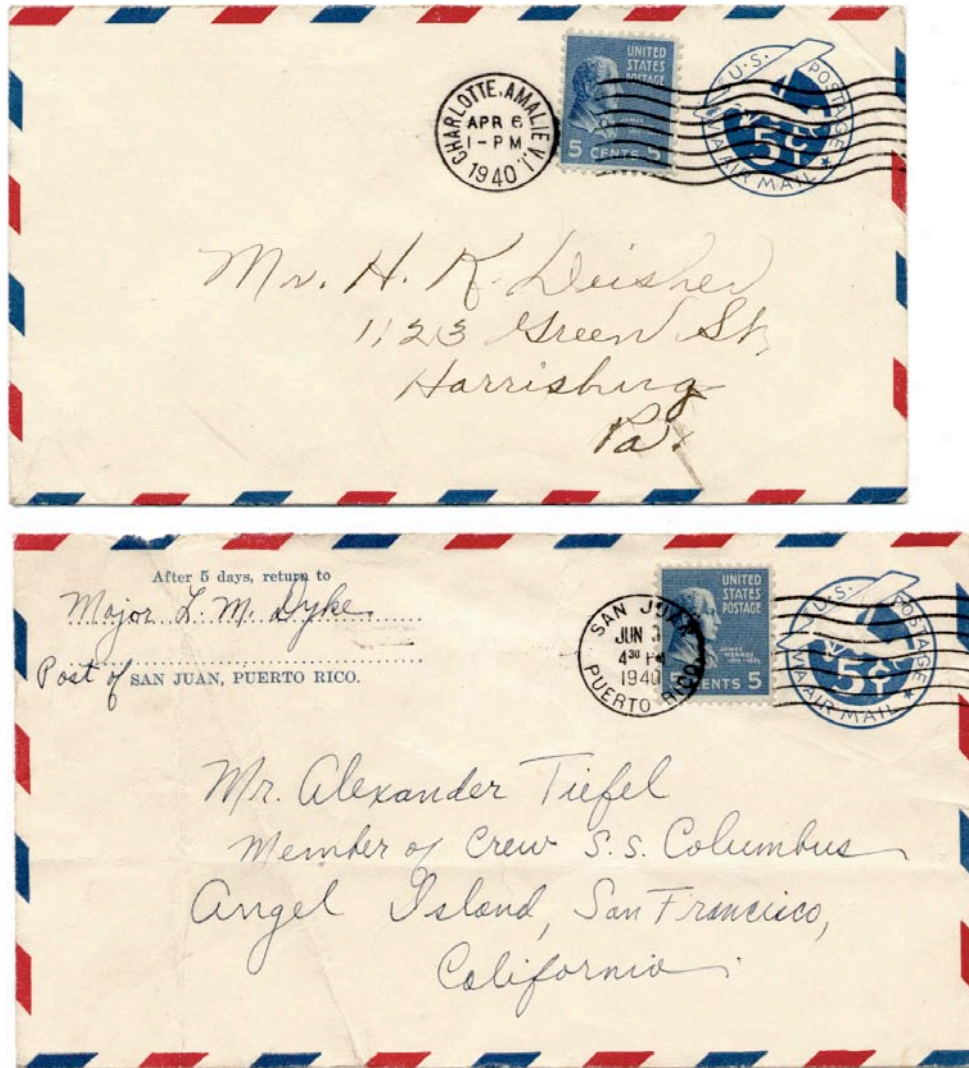 CHARLOTTE, AMALIE V.I.
APR 6
1-PM
1940
UNITED
STATES
POSTAGE
JAMES
5 CENTS 5
U.S. POSTAGE
5¢
VIA AIR MAIL
Mr. H. K. Deisher
1123 Green St.
Harrisburg
Pa.
After 5 days, return to
Major L. M. Dyke
Post of SAN JUAN, PUERTO RICO.
SAN JUAN
JUN 3
4 30 PM
1940
PUERTO RICO
UNITED
STATES
POSTAGE
JAMES
MONROE
5 CENTS 5
U.S. POSTAGE
5¢
VIA AIR MAIL
Mr. Alexander Tiefel
Member of Crew S.S. Columbus
Angel Island, San Francisco,
California.